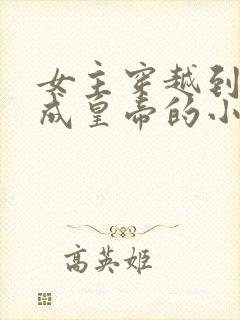 女主穿越到
成皇帝的小
高英姬